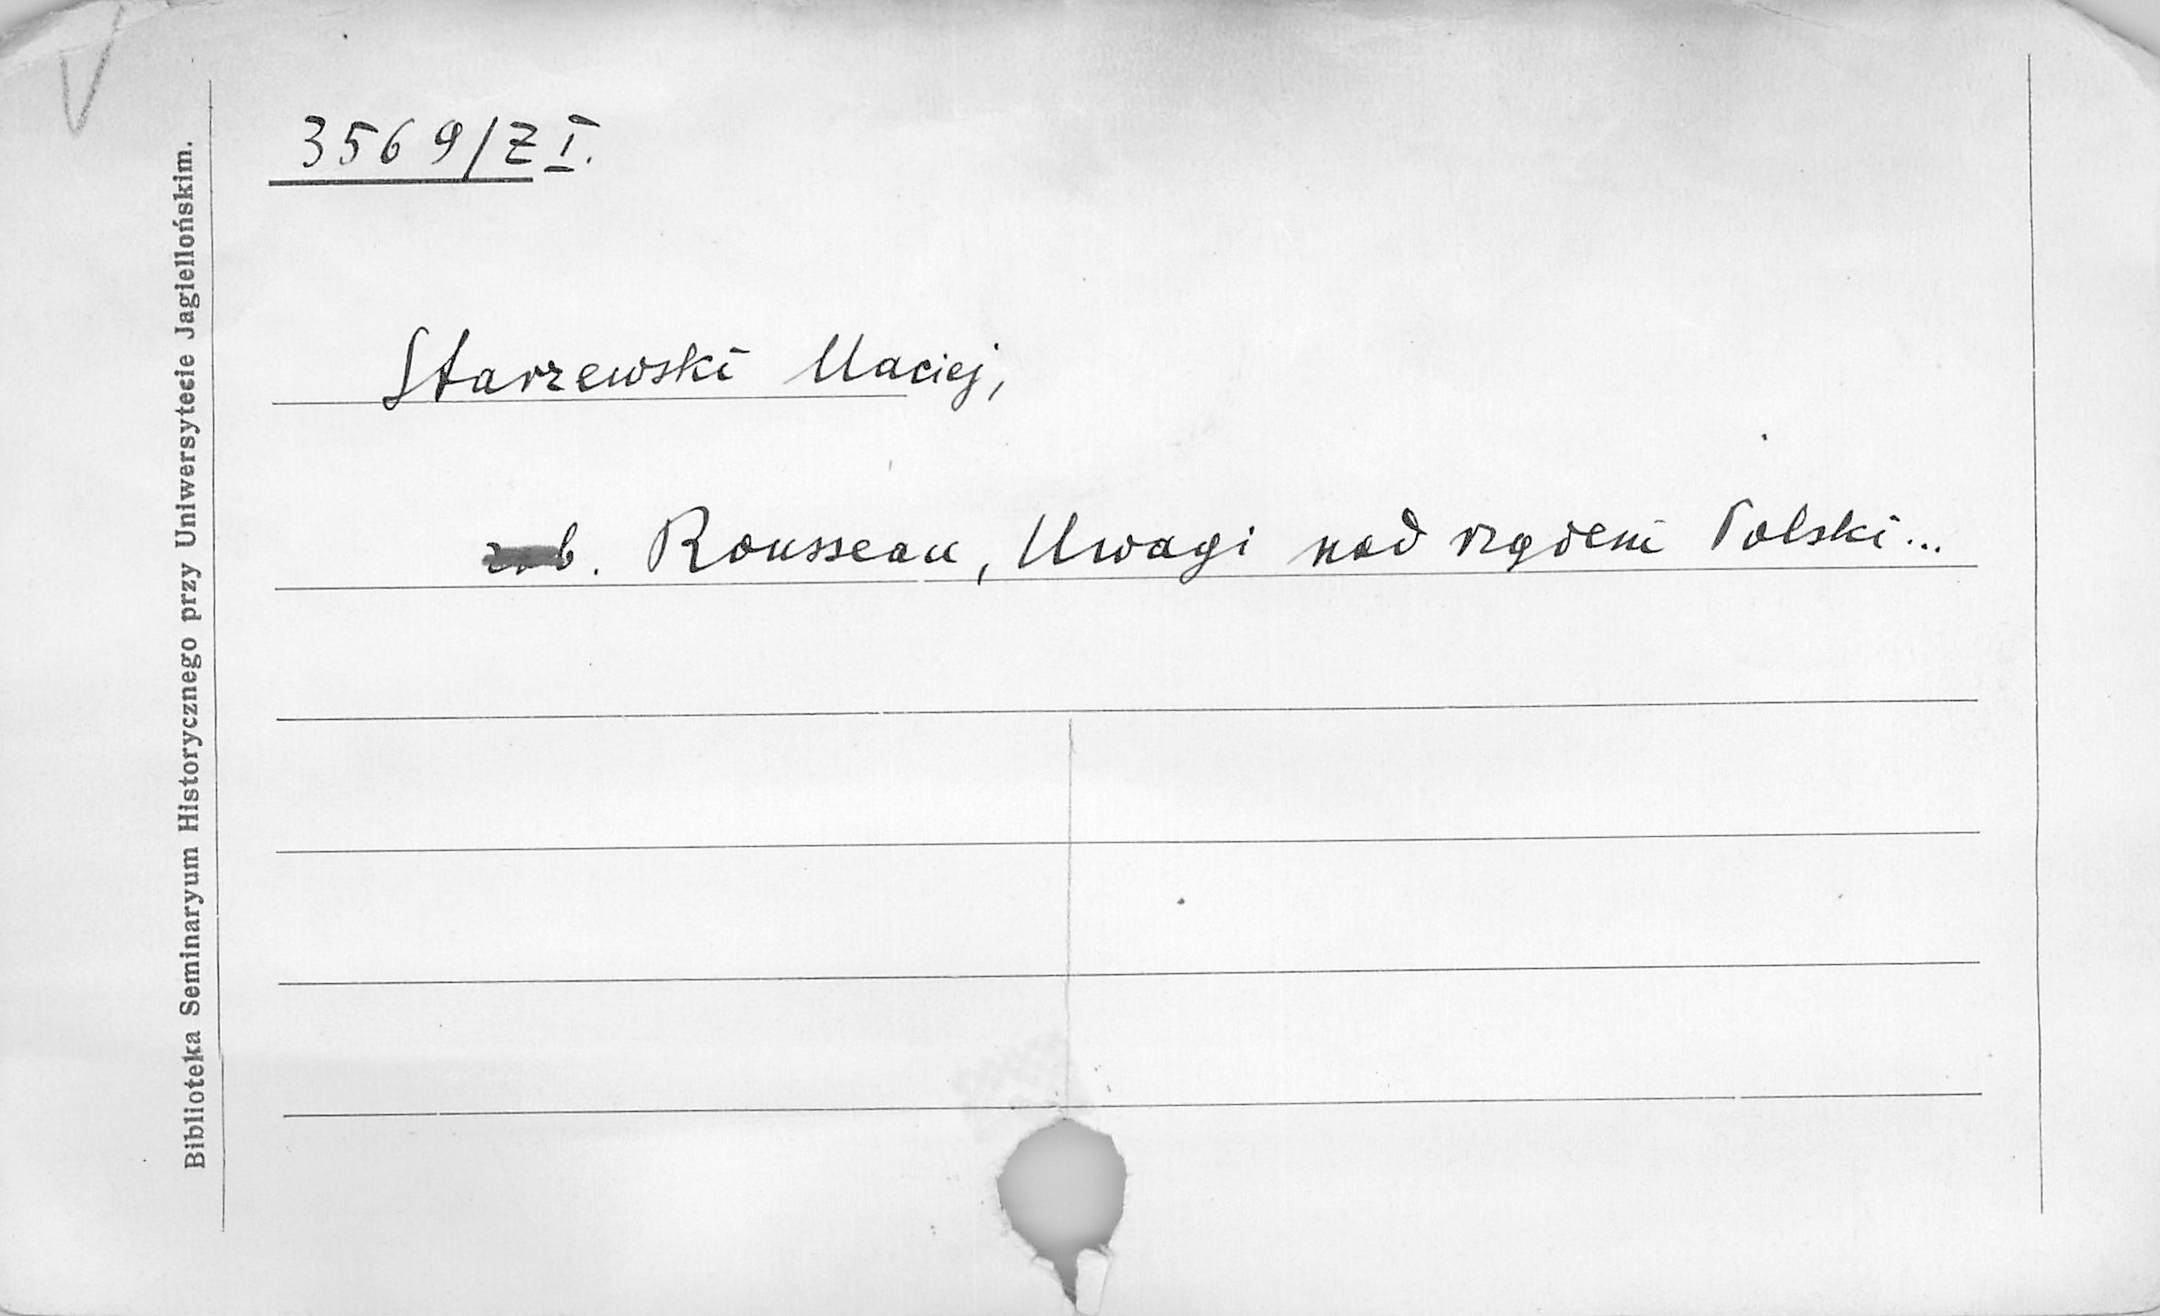 3569/Z I.
Starzewski Maciej,
zob. Rousseau, Uwagi nad rządem Polski...
Biblioteka Seminaryum Historycznego przy Uniwersytecie Jagiellońskim.